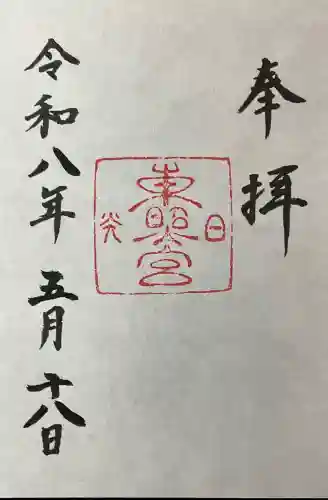 奉拝
日光
東照宮
令和八年 五月 十八日